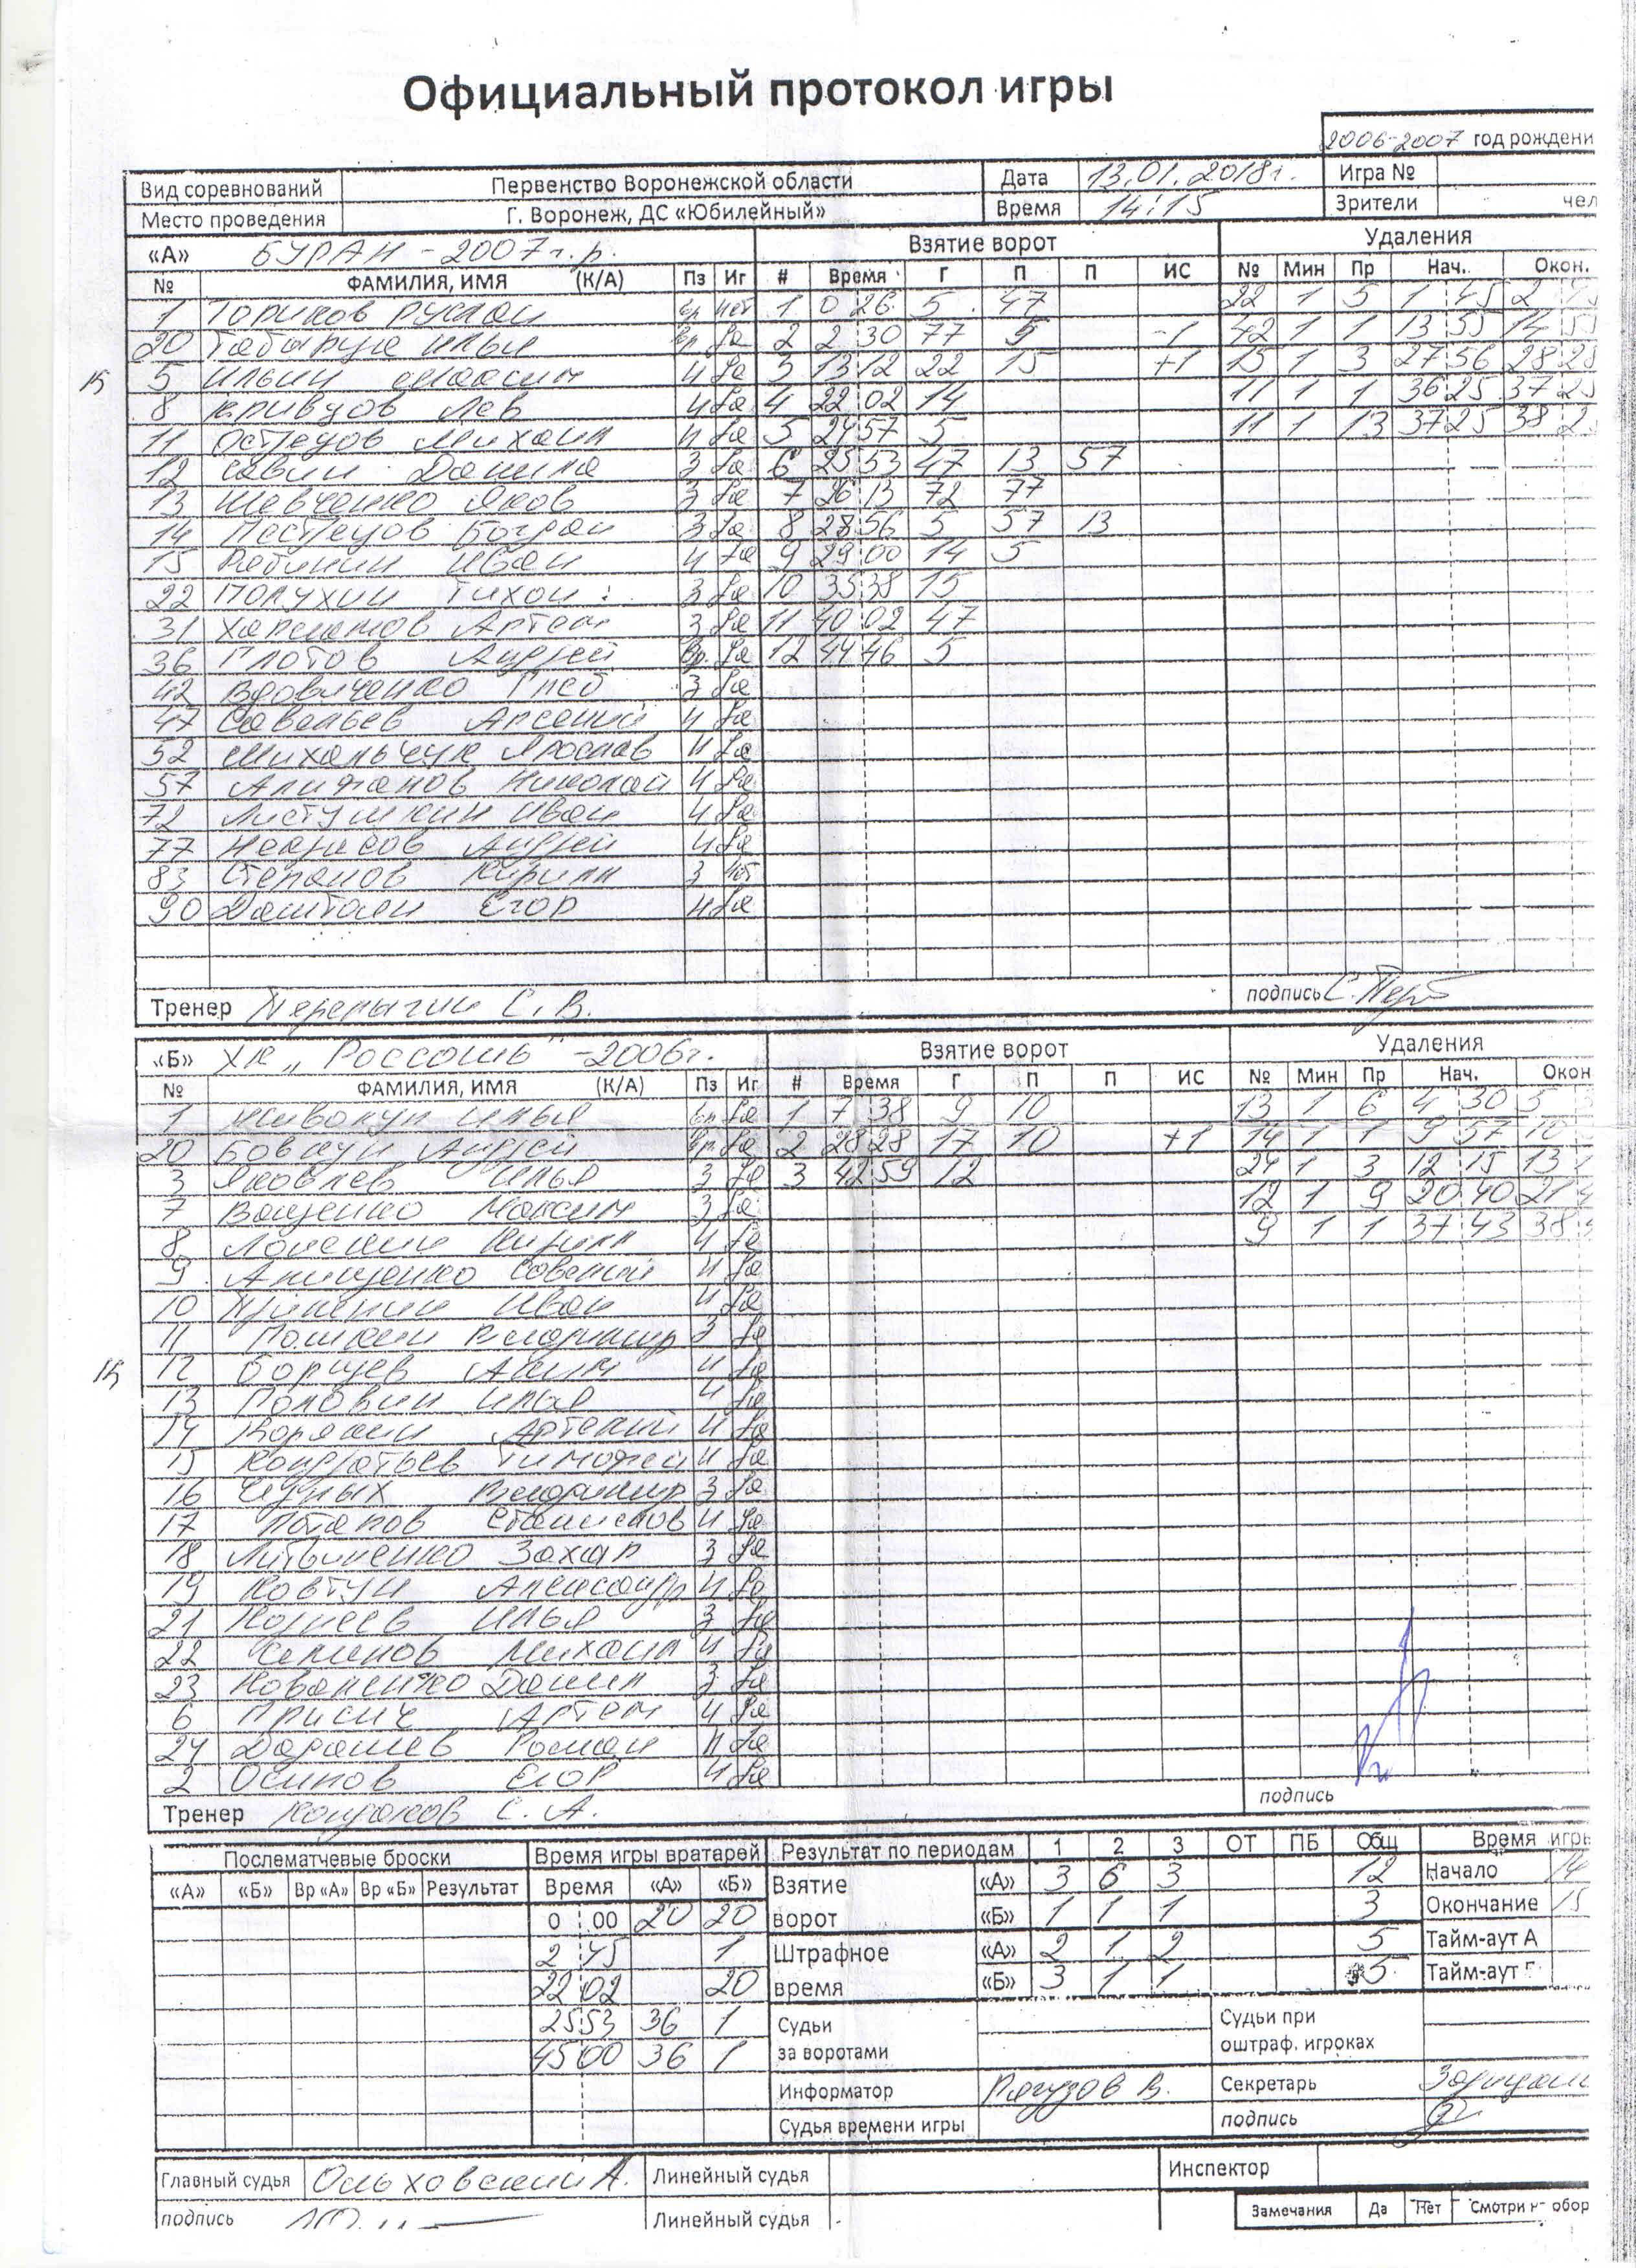 Официальный протокол игры
2006-2007 год рождени
Вид соревнований Первенство Воронежской области Дата 13.01.2018г. Игра №
Место проведения Г. Воронеж, ДС «Юбилейный» Время 14:15 Зрители чел
«А» БУРАН - 2007 г.р. Взятие ворот Удаления
№ ФАМИЛИЯ, ИМЯ (К/А) Пз Иг # Время Г П П ИС № Мин Пр Нач. Окон.
1 Ториков Руслан вр нет 1 0 26 5 47 22 1 5 1 45 2
20 Илья вр да 2 2 30 77 5 -1 42 1 1 13 55 14 55
К 5 Ильин Максим н да 3 13 12 22 15 +1 15 1 3 27 56 28 28
8 Кривцов Лев н да 4 22 02 14 11 1 1 36 25 37 25
11 Остецов Михаил н да 5 24 57 5 11 1 13 37 25 38 25
12 Савин Данила з да 6 25 53 47 13 57
13 Шевченко Яков з да 7 26 13 72 77
14 Пестрецов Богдан з да 8 28 56 5 57 13
15 Рябинин Иван н да 9 29 00 14 5
22 Полухин Тихон з да 10 35 38 15
31 Артем з да 11 40 02 47
36 Плотов Андрей Вр. да 12 44 46 5
42 Вдовиченко Глеб з да
47 Савельев Арсений н да
52 Михальчук Ярослав н да
57 Алифанов Николай н да
72 Листушкин Иван н да
77 Некрасов Андрей н да
83 Степанов Кирилл з нет
90 Даштоян Егор н да
Тренер Перелыгин С. В. подпись
«Б» ХК „Россошь" - 2006г. Взятие ворот Удаления
№ ФАМИЛИЯ, ИМЯ (К/А) Пз Иг # Время Г П П ИС № Мин Пр Нач. Окон
1 Живокун Илья вр да 1 7 38 9 10 13 1 6 4 30 5
20 Бовкун Андрей вр да 2 28 28 17 10 +1 14 1 1 9 57 10
3 Яковлев Илья з да 3 42 59 12 24 1 3 12 15 13
7 Ващенко Максим з да 12 1 9 20 40 21
8 Кирилл н да 9 1 1 37 43 38
9 Анищенко Савелий н да
10 Иван н да
11 Владимир з да
К 12 Борщев Аким н да
13 Половин Илья н да
14 Артемий н да
15 Кондратьев Тимофей н да
16 Чудных Владимир з да
17 Потапов Станислав н да
18 Литвиненко Захар з да
19 Ковтун Александр н да
21 Корнеев Илья з да
22 Семенов Михаил н да
23 Коваленко Данил з да
6 Присич Артем н да
24 Роман н да
2 Осипов Егор н да
Тренер С. А. подпись
Послематчевые броски Время игры вратарей Результат по периодам 1 2 3 ОТ ПБ Общ Время игры
«А» «Б» Вр «А» Вр «Б» Результат Время «А» «Б» Взятие «А» 3 6 3 12 Начало 14
0 00 20 20 ворот «Б» 1 1 1 3 Окончание 15
2 45 1 Штрафное «А» 2 1 2 5 Тайм-аут А
22 02 20 время «Б» 3 1 1 5 Тайм-аут
25 53 36 1 Судьи Судьи при
45 00 36 1 за воротами оштраф. игроках
Информатор Рагузов В. Секретарь
Судья времени игры подпись
Главный судья Ольховский А. Линейный судья Инспектор
подпись Линейный судья Замечания Да Нет Смотри обор